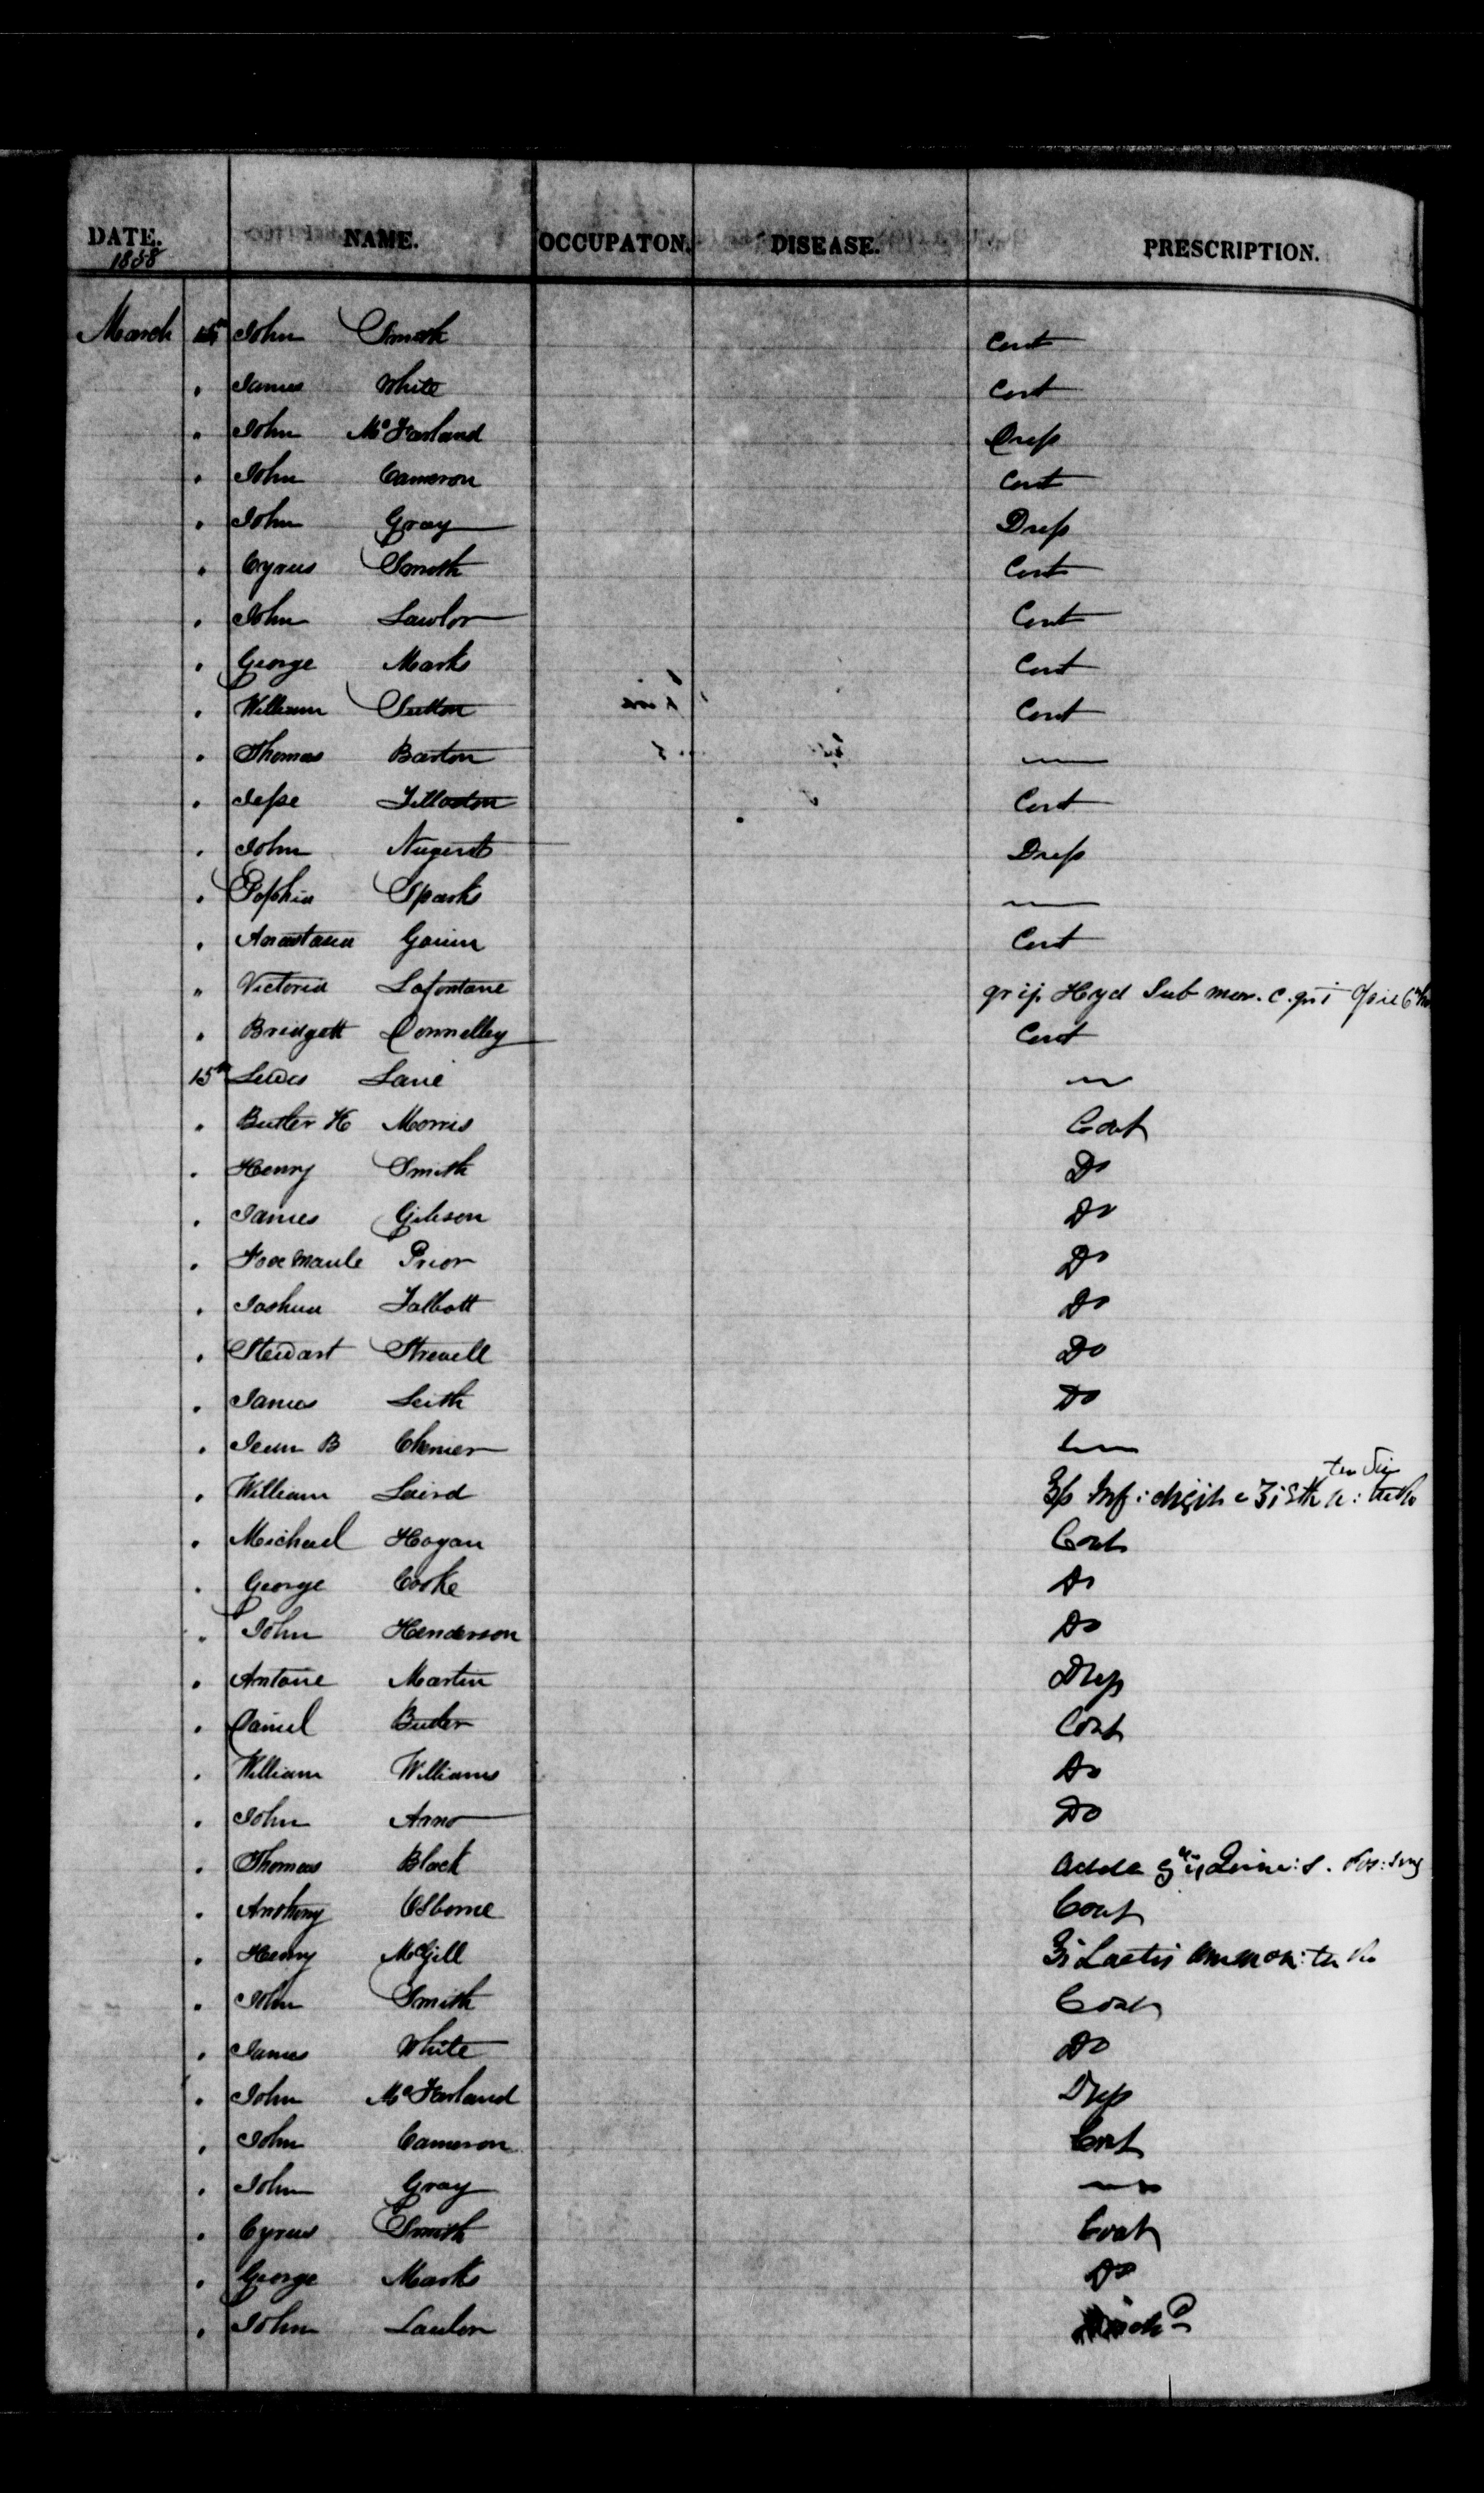 DATE. NAME. OCCUPATON. DISEASE. PRESCRIPTION.
1858
March John Smith Cont
" James White Cont
" John McFarland Dress
" John Cameron Cont
" John Gray Dress
" Cyrus Smith Cont
" John Lawlor Cont
" George Marks Cont
" William Sutton Cont
" Thomas Barton —
" Jesse Tillotson Cont
" John Nugent Dress
" Sophia Sparks —
" Anastasia Cont
" Victoria Lafontane gr ij. Hyd Sub mur. c.
" Bridgett Donnelley Cont
15th Lewis Lane —
" Butler H Morris Cont
" Henry Smith Do
" James Gibson Do
" Fox Maule Prior Do
" Joshua Talbott Do
" Stewart Strevell Do
" James Leith Do
" Jean B Chenier —
" William Laird ʒss Inf: digit c ʒi
" Michael Hogan Cont
" George Cooke Do
" John Henderson Do
" Antoine Martin Dress
" Daniel Butler Cont
" William Williams Do
" John Arno Do
" Thomas Black
" Anthony Osborne Cont
" Henry McGill ʒi Lactis ammon: ter
" John Smith Cont
" James White Do
" John McFarland Dress
" John Cameron Cont
" John Gray —
" Cyrus Smith Cont
" George Marks Do
" John Lawlor